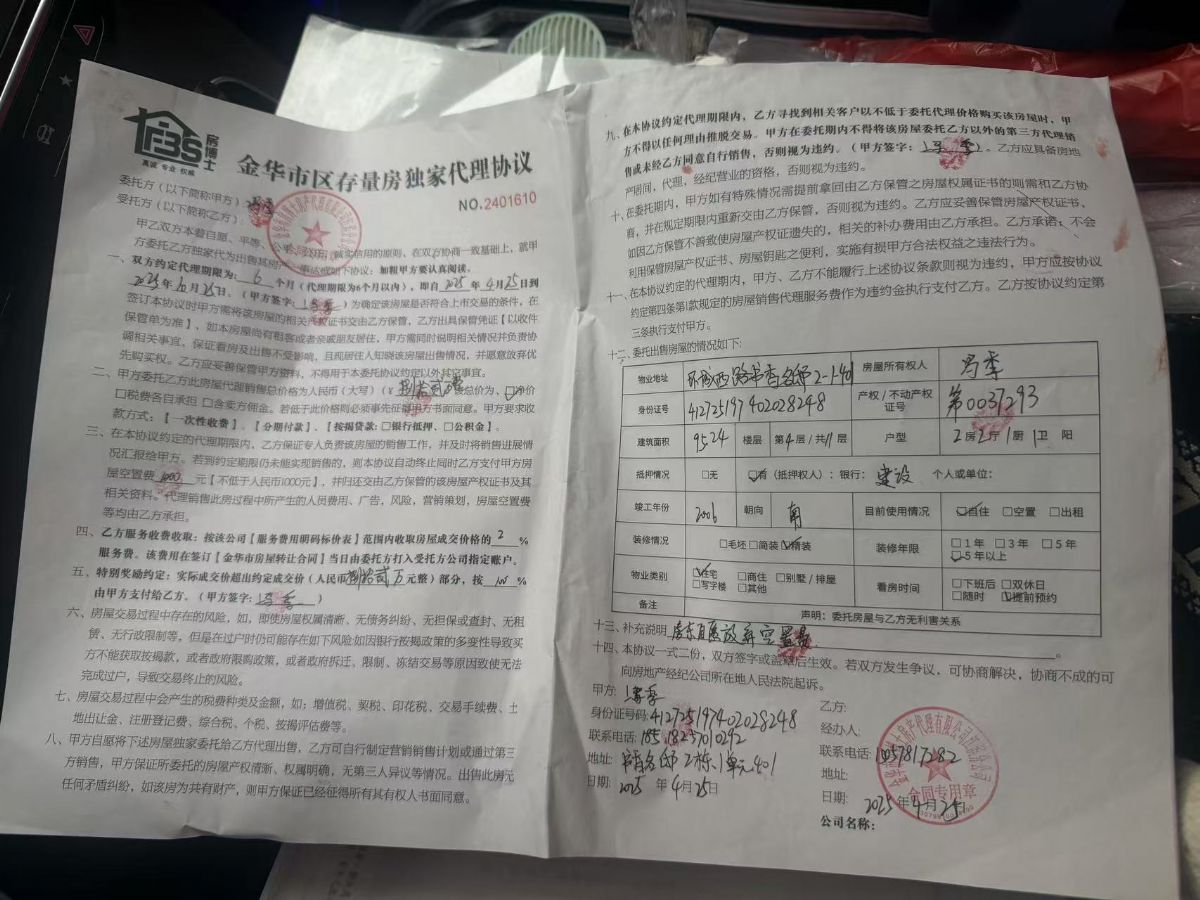 FBS
房博士
真诚 专业 权威
金华市区存量房独家代理协议
NO.2401610
委托方（以下简称甲方）：
受托方（以下简称乙方）：
甲乙双方本着自愿、平等、公平、诚实信用的原则，在双方协商一致基础上，就甲
方委托乙方独家代为出售其房产一事达成如下协议：加粗甲方要认真阅读。
一、双方约定代理期限为：6 个月（代理期限为6个月以内），即自 2025 年 4月 25日到
2025年 10月 25日。（甲方签字： ）为确定该房屋是否符合上市交易的条件，在
签订本协议时甲方需将该房屋的相关产权证书交由乙方保管，乙方出具保管凭证【以收件
保管单为准】，如本房屋尚有租客或者亲戚朋友居住，甲方需同时说明相关情况并负责协
调相关事宜。保证看房及出售不受影响，且现居住人知晓该房屋出售情况，并愿意放弃优
先购买权。乙方应妥善保管甲方资料，不得用于本委托协议约定以外其它事宜。
二、甲方委托乙方此房屋代理销售总价格为人民币（大写）（¥ 该总价为，☑净价
☐税费各自承担 ☐含卖方佣金。若低于此价格则必须事先征得甲方书面同意。甲方要求收
款方式：【一次性收费】、【分期付款】、【按揭贷款：☐银行抵押、☐公积金】。
三、在本协议约定的代理期限内，乙方保证专人负责该房屋的销售工作，并及时将销售进展情
况汇报给甲方。若到约定期限仍未能实现销售的，则本协议自动终止同时乙方支付甲方房
屋空置费 1000 元【不低于人民币1000元】，并归还交由乙方保管的该房屋产权证书及其
相关资料。代理销售此房过程中所产生的人员费用、广告，风险，营销策划，房屋空置费
等均由乙方承担。
四、乙方服务收费收取：按该公司【服务费用明码标价表】范围内收取房屋成交价格的 2 %
服务费。该费用在签订【金华市房屋转让合同】当日由委托方打入受托方公司指定账户。
五、特别奖励约定：实际成交价超出约定成交价（人民币 万元整）部分，按 100 %
由甲方支付给乙方。（甲方签字： ）
六、房屋交易过程中存在的风险，如，即使房屋权属清晰、无债务纠纷、无担保或查封、无租
赁、无行政限制等。但是在过户时仍可能存在如下风险如因银行按揭政策的多变性导致买
方不能获取按揭款，或者政府限购政策，或者政府拆迁、限制，冻结交易等原因致使无法
完成过户，导致交易终止的风险。
七、房屋交易过程中会产生的税费种类及金额，如；增值税、契税、印花税、交易手续费、土
地出让金、注册登记费、综合税、个税、按揭评估费等。
八、甲方自愿将下述房屋独家委托给乙方代理出售，乙方可自行制定营销销售计划或通过第三
方销售，甲方保证所委托的房屋产权清晰、权属明确，无第三人异议等情况。出售此房无
任何矛盾纠纷，如该房为共有财产，则甲方保证已经征得所有其有权人书面同意。
九、在本协议约定代理期限内，乙方寻找到相关客户以不低于委托代理价格购买该房屋时，甲
方不得以任何理由推脱交易。甲方在委托期内不得将该房屋委托乙方以外的第三方代理销
售或未经乙方同意自行销售，否则视为违约。（甲方签字： ）。乙方应具备房地
产居间，代理，经纪营业的资格，否则视为违约。
十、在委托期内，甲方如有特殊情况需提前拿回由乙方保管之房屋权属证书的则需和乙方协
商，并在规定期限内重新交由乙方保管，否则视为违约。乙方应妥善保管房屋产权证书，
如因乙方保管不善致使房屋产权证遗失的，相关的补办费用由乙方承担。乙方承诺，不会
利用保管房屋产权证书、房屋钥匙之便利，实施有损甲方合法权益之违法行为。
十一、在本协议约定的代理期内，甲方、乙方不能履行上述协议条款则视为违约，甲方应按协议
约定第四条第1款规定的房屋销售代理服务费作为违约金执行支付乙方。乙方按协议约定第
三条执行支付甲方。
十二、委托出售房屋的情况如下：
物业地址 环城西路书香名邸2-1-401 房屋所有权人
身份证号 412725197402028248 产权/不动产权证号 第0037293
建筑面积 95.24 楼层 第4层/共11层 户型 2房2厅1厨1卫 阳
抵押情况 ☐无 ☑有（抵押权人）：银行：建设 个人或单位：
竣工年份 2006 朝向 南 目前使用情况 ☑自住 ☐空置 ☐出租
装修情况 ☐毛坯 ☐简装 ☑精装 装修年限 ☐1年 ☐3年 ☐5年 ☑5年以上
物业类别 ☑住宅 ☐商住 ☐别墅/排屋 ☐写字楼 ☐其他 看房时间 ☐下班后 ☐双休日 ☐随时 ☑提前预约
备注 声明：委托房屋与乙方无利害关系
十三、补充说明 房东自愿放弃空置费。
十四、本协议一式二份，双方签字或盖章后生效。若双方发生争议，可协商解决，协商不成的可
向房地产经纪公司所在地人民法院起诉。
甲方：
身份证号码：412725197402028248
联系电话：
地址：书香名邸2栋1单元401
日期：2025 年 4月 25日
乙方：
经办人：
联系电话：
地址：
日期：2025年 4月 25日
公司名称：
合同专用章